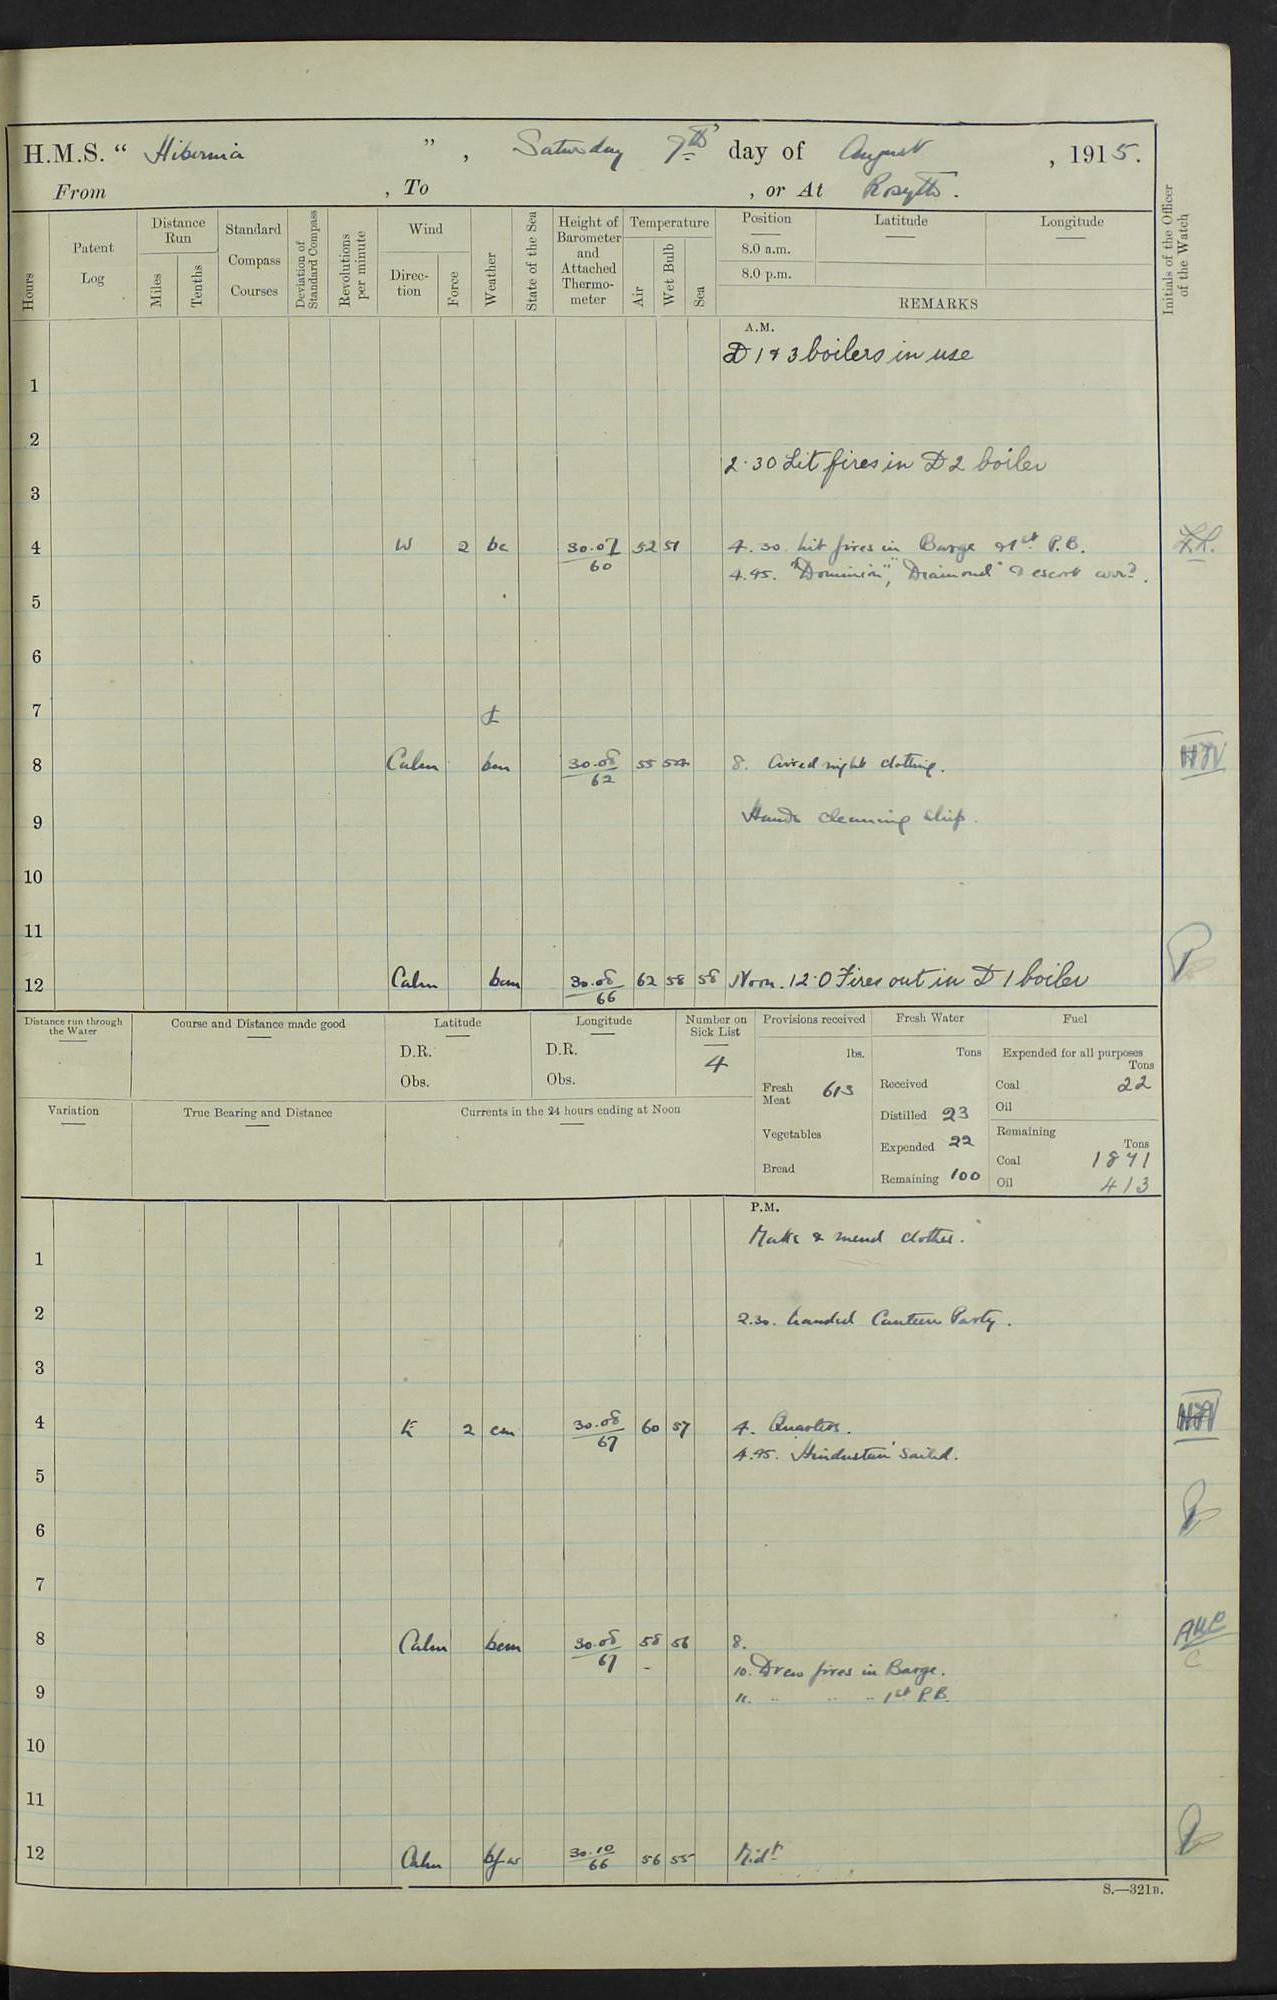 H.M.S. “ Hibernia ” , Saturday 7th day of August , 1915.
From , To , or At Rosyth .
Hours
Patent Log
Distance Run
Miles
Tenths
Standard Compass Courses
Deviation of Standard Compass
Revolutions per minute
Wind
Direc-tion
Force
Weather
State of the Sea
Height of Barometer and Attached Thermo-meter
Temperature
Air
Wet Bulb
Sea
Position
8.0 a.m.
8.0 p.m.
Latitude
Longitude
REMARKS
Initials of the Officer of the Watch
A.M.
D 1 & 3 boilers in use
1
2
2.30 Lit fires in D 2 boiler
3
4 W 2 bc 30.07 52 51 4.30. Lit fires in Barge & 1st P.B.
60
4.45. "Dominion", "Diamond" & escort arrd.
5
6
7
8 Calm bm 30.08 55 54 8. Aired night clothing.
62
Hands cleaning ship.
9
10
11
12 Calm bcm 30.08 62 58 58 Noon. 12.0 Fires out in D 1 boiler
66
Distance run through the Water
Course and Distance made good
Latitude
D.R.
Obs.
Longitude
D.R.
Obs.
Number on Sick List
4
Provisions received
lbs.
Fresh Meat 613
Vegetables
Bread
Fresh Water
Tons
Received
Distilled 23
Expended 22
Remaining 100
Fuel
Expended for all purposes
Tons
Coal 22
Oil
Remaining
Tons
Coal 1871
Oil 413
Variation
True Bearing and Distance
Currents in the 24 hours ending at Noon
P.M.
Make & mend clothes.
1
2 2.30. Landed Canteen Party.
3
4 E 2 cm 30.08 60 57 4. Quarters.
67
4.45. 'Hindustan' sailed.
5
6
7
8 Calm bcm 30.08 58 56 8.
67
10. Drew fires in Barge.
9 11. " " " 1st P.B.
10
11
12 Calm bfw 30.10 56 55 Midt
66
S.—321B.